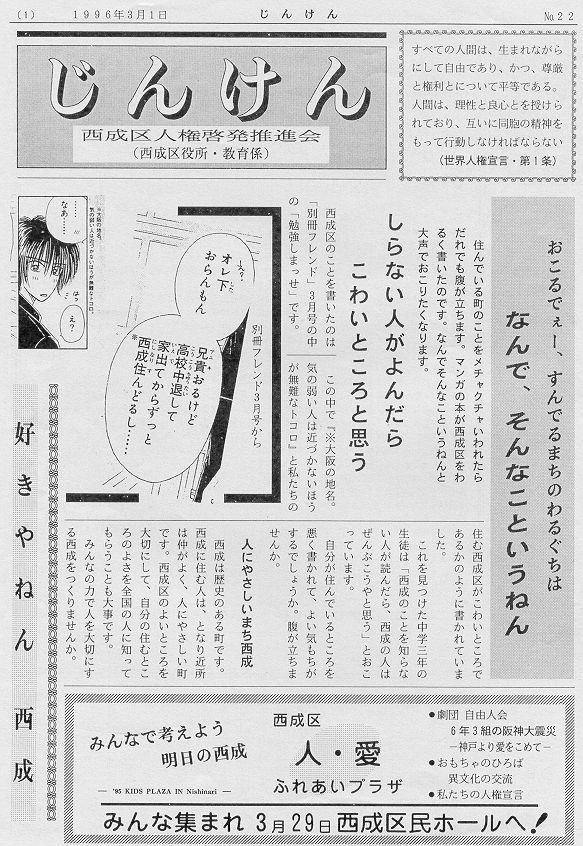 (1) 1996年3月1日 じんけん №22
じんけん
西成区人権啓発推進会
(西成区役所・教育係)
すべての人間は、生まれながら
にして自由であり、かつ、尊厳
と権利とについて平等である。
人間は、理性と良心とを授けら
れており、互いに同胞の精神を
もって行動しなければならない
(世界人権宣言・第1条)
おこるでぇー、すんでるまちのわるぐちは
なんで、そんなこというねん
住んでいる町のことをメチャクチャいわれたら
だれでも腹が立ちます。マンガの本が西成区をわ
るく書いたのです。なんでそんなこというねんと
大声でおこりたくなります。
しらない人がよんだら
こわいところと思う
西成区のことを書いたのは
「別冊フレンド」3月号の中
の「勉強しまっせ」です。
この中で『※大阪の地名。
気の弱い人は近づかないほう
が無難なトコロ』と私たちの
住む西成区がこわいところで
あるかのように書かれていま
した。
これを見つけた中学三年の
生徒は「西成のことを知らな
い人が読んだら、西成の人は
ぜんぶこうやと思う」とおこ
っています。
自分が住んでいるところを
悪く書かれて、よい気もちが
するでしょうか。腹が立ちま
せんか。
人にやさしいまち西成
西成は歴史のある町です。
西成に住む人は、となり近所
は仲がよく、人にやさしい町
です。西成区のよいところを
大切にして、自分の住むとこ
ろのよさを全国の人に知って
もらうことも大事です。
みんなの力で人を大切にす
る西成をつくりませんか。
別冊フレンド3月号から
オレ下
おらんもん
兄貴おるけど
高校中退して
家出てからずっと
※西成住んどるし……
※大阪の地名。
気の弱い人は近づかないほうが無難なトコロ。
……
なあ……
はっ
え?
好きやねん 西成
みんなで考えよう
明日の西成
― '95 KIDS PLAZA IN Nishinari ―
西成区
人・愛
ふれあいプラザ
●劇団 自由人会
6年3組の阪神大震災
―神戸より愛をこめて―
●おもちゃのひろば
異文化の交流
●私たちの人権宣言
みんな集まれ 3月29日 西成区民ホールへ!